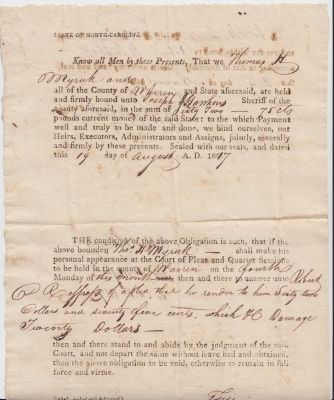 STATE OF NORTH-CAROLINA.
Know all Men by these Presents, That we Thomas H
Myrick and
all of the County of Warren and State aforesaid, are held
and firmly bound unto Joseph Hawkins Sheriff of the
county aforesaid, in the sum of Sixty Two 75 Cts
pounds current money of the said State: to the which Payment
well and truly to be made and done, we bind ourselves, our
Heirs, Executors, Administrators and Assigns, jointly, severally
and firmly by these presents. Sealed with our seals, and dated
this 19 day of August A. D. 1817
THE condition of the above Obligation is such, that if the
above bounden Tho. H Myrick shall make his
personal appearance at the Court of Pleas and Quarter Sessions
to be held in the county of Warren on the fourth
Monday of this month next, then and there to answer unto Robert
R of a plea that he render to him Sixty two
Dollars and seventy five cents, which &C Damage
Twenty Dollars
then and there to stand to and abide by the judgment of the said
Court, and not depart the same without leave had and obtained,
then the above obligation to be void, otherwise to remain in full
force and virtue.